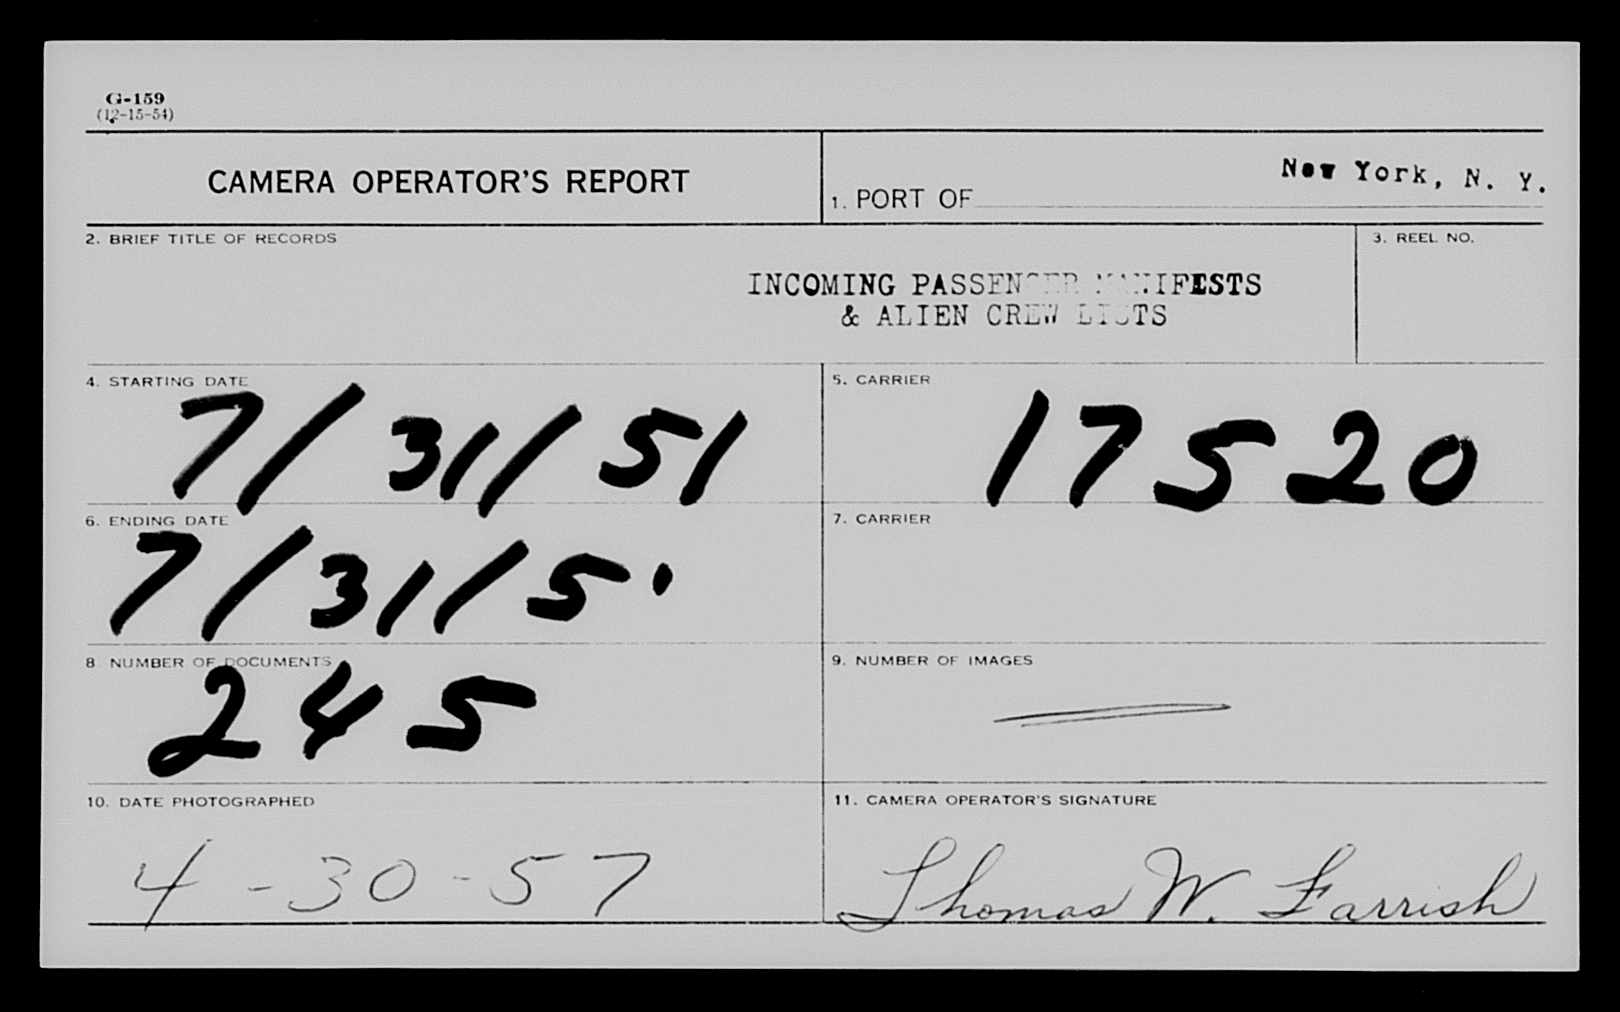 G-159
(12-15-54)
CAMERA OPERATOR'S REPORT
1. PORT OF New York, N. Y.
2. BRIEF TITLE OF RECORDS
INCOMING PASSENGER MANIFESTS
& ALIEN CREW LISTS
3. REEL NO.
4. STARTING DATE
7/31/51
5. CARRIER
17520
6. ENDING DATE
7/31/5'
7. CARRIER
8 NUMBER OF DOCUMENTS
245
9. NUMBER OF IMAGES
10. DATE PHOTOGRAPHED
4-30-57
11. CAMERA OPERATOR'S SIGNATURE
Thomas W. Farrish